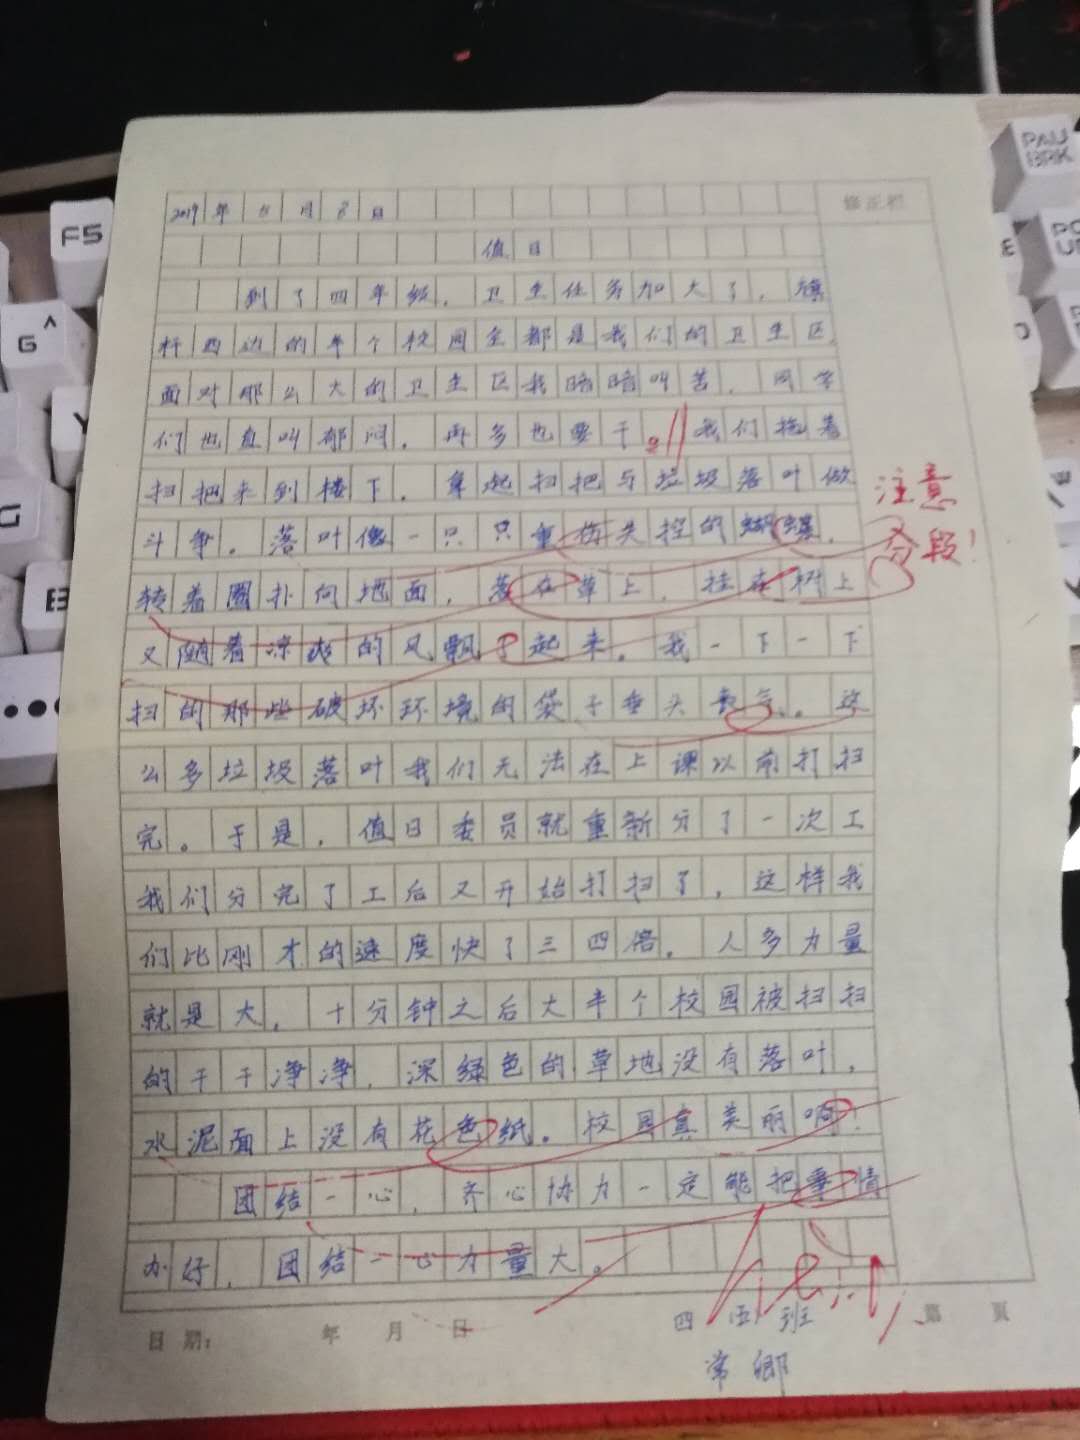 2019年11月8日
修正栏
值日
到了四年级，卫生任务加大了，旗
杆西边的半个校园全都是我们的卫生区，
面对那么大的卫生区我暗暗叫苦，同学
们也直叫郁闷，再多也要干。我们拖着
扫把来到楼下，拿起扫把与垃圾落叶做
斗争。落叶像一只只重伤失控的蝴蝶，
转着圈扑向地面，落在草上，挂在树上
又随着凉爽的风飘了起来。我一下一下
扫的那些破坏环境的袋子垂头丧气。这
么多垃圾落叶我们无法在上课以前打扫
完。于是，值日委员就重新分了一次工
我们分完了工后又开始打扫了，这样我
们比刚才的速度快了三四倍。人多力量
就是大，十分钟之后大半个校园被扫扫
的干干净净，深绿色的草地没有落叶，
水泥面上没有花色纸。校园真美丽啊！
团结一心，齐心协力一定能把事情
办好，团结一心力量大。
注意
分段！
日期： 年 月 日
四 四班
第 页
常卿
F5
G
PAU
BRK